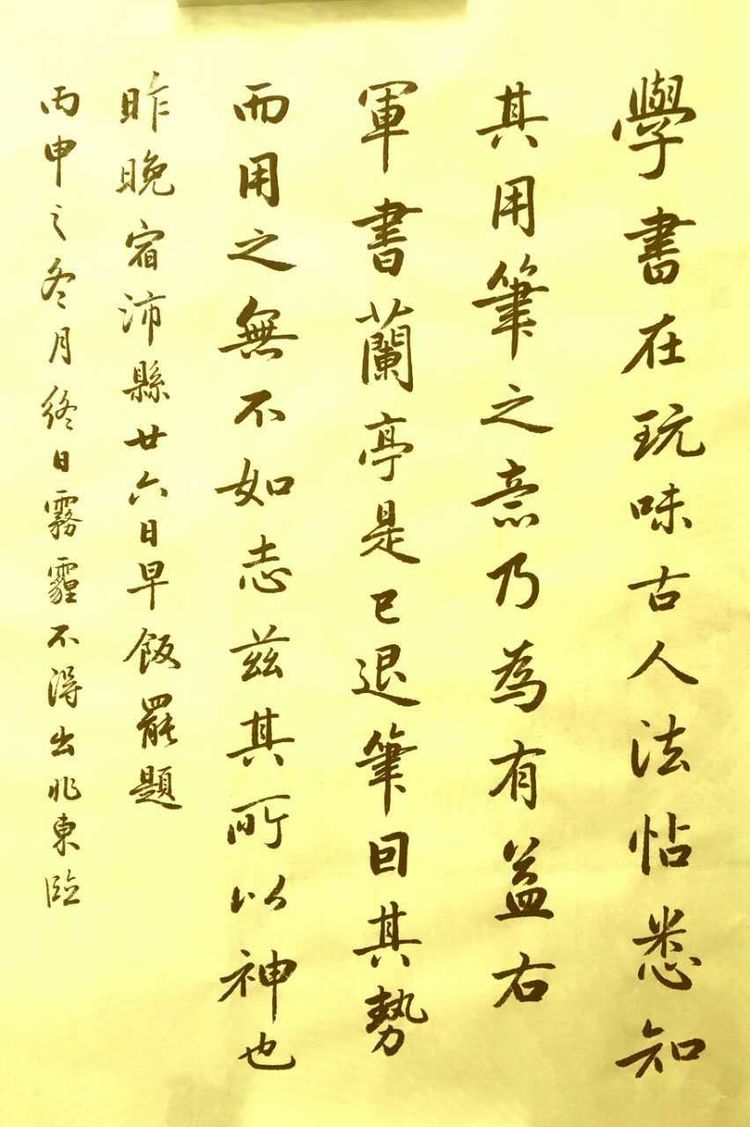 學書在玩味古人法帖悉知
其用筆之意乃為有益右
軍書蘭亭是已退筆因其勢
而用之無不如志茲其所以神也
昨晚宿沛縣廿六日早飯罷題
丙申之冬月終日霧霾不得出兆東臨